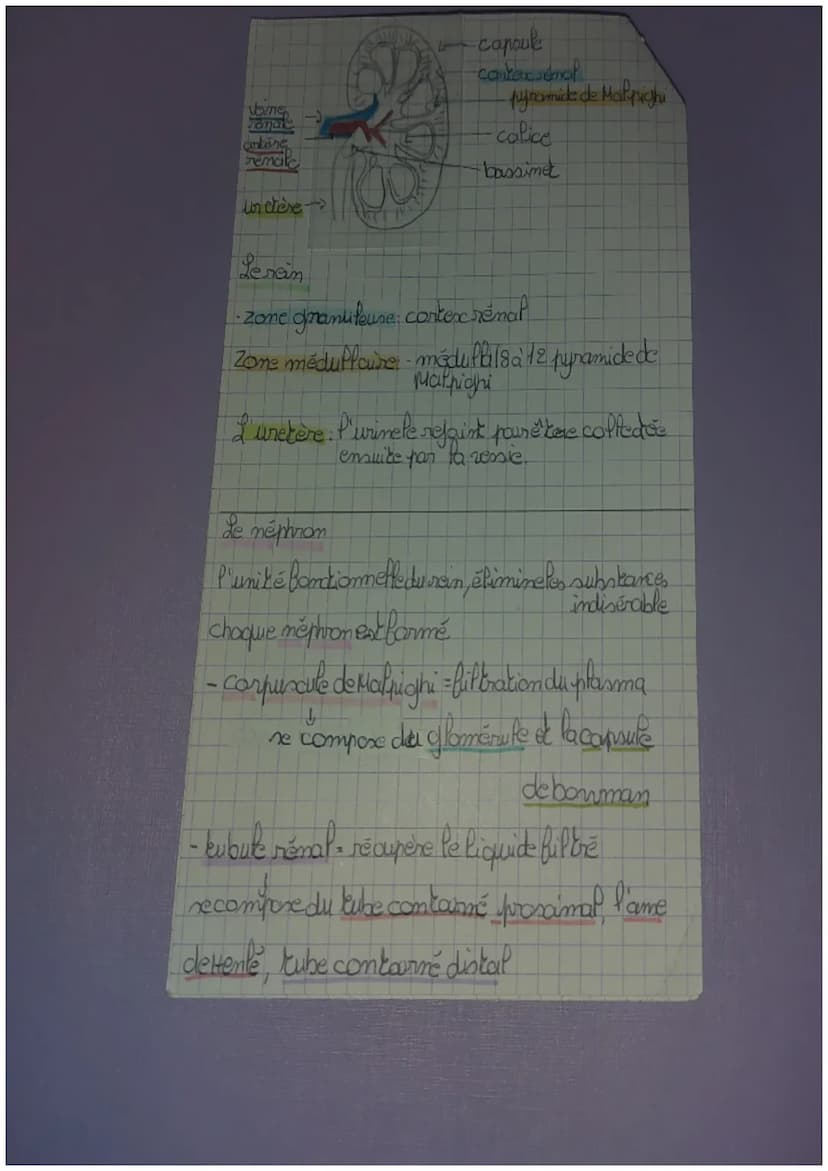 capsule
cortex rénal
pyramide de Malpighi
veine
rénale
artère
rénale
calice
bassinet
uretère
Le rein
- zone granuleuse : cortex rénal
Zone médullaire : - médulla / 8 à 12 pyramide de
Malpighi
L'uretère : l'urine le rejoint pour être collectée
ensuite par la vessie.
Le néphron
l'unité fonctionnelle du rein, élimine les substances
indisérable
chaque néphron est formé
- corpuscule de Malpighi = filtration du plasma
↓
se compose du glomérule et la capsule
de bowman
- tubule rénal = récupère le liquide filtré
se compose du tube contourné proximal, l'anse
de Henlé, tube contourné distal